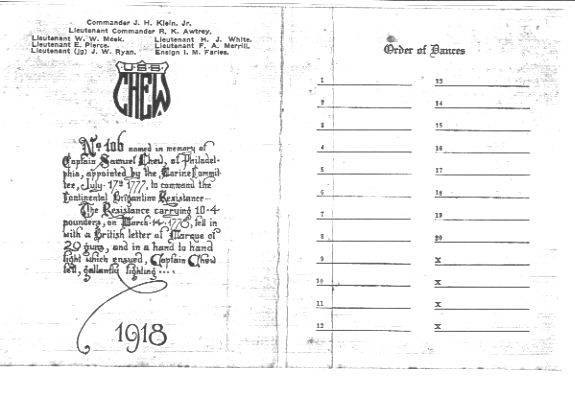 Commander J. H. Klein, Jr.
Lieutenant Commander R. K. Awtrey.
Lieutenant W. W. Meek. Lieutenant H. J. White.
Lieutenant E. Pierce. Lieutenant F. A. Merrill.
Lieutenant (jg) J. W. Ryan. Ensign I. M. Faries.
U·S·S
CHEW
No 106 named in memory of
Captain Samuel Chew, of Philadel-
phia, appointed by the Marine Commit-
tee, July 17th 1777, to command the
Continental Brigantine Resistance—
The Resistance carrying 10-4
pounders, on March 4 1778, fell in
with a British letter of Marque of
20 guns, and in a hand to hand
fight which ensued, Captain Chew
fell, gallantly fighting ····
1918
Order of Dances
1
2
3
4
5
6
7
8
9
10
11
12
13
14
15
16
17
18
19
20
X
X
X
X